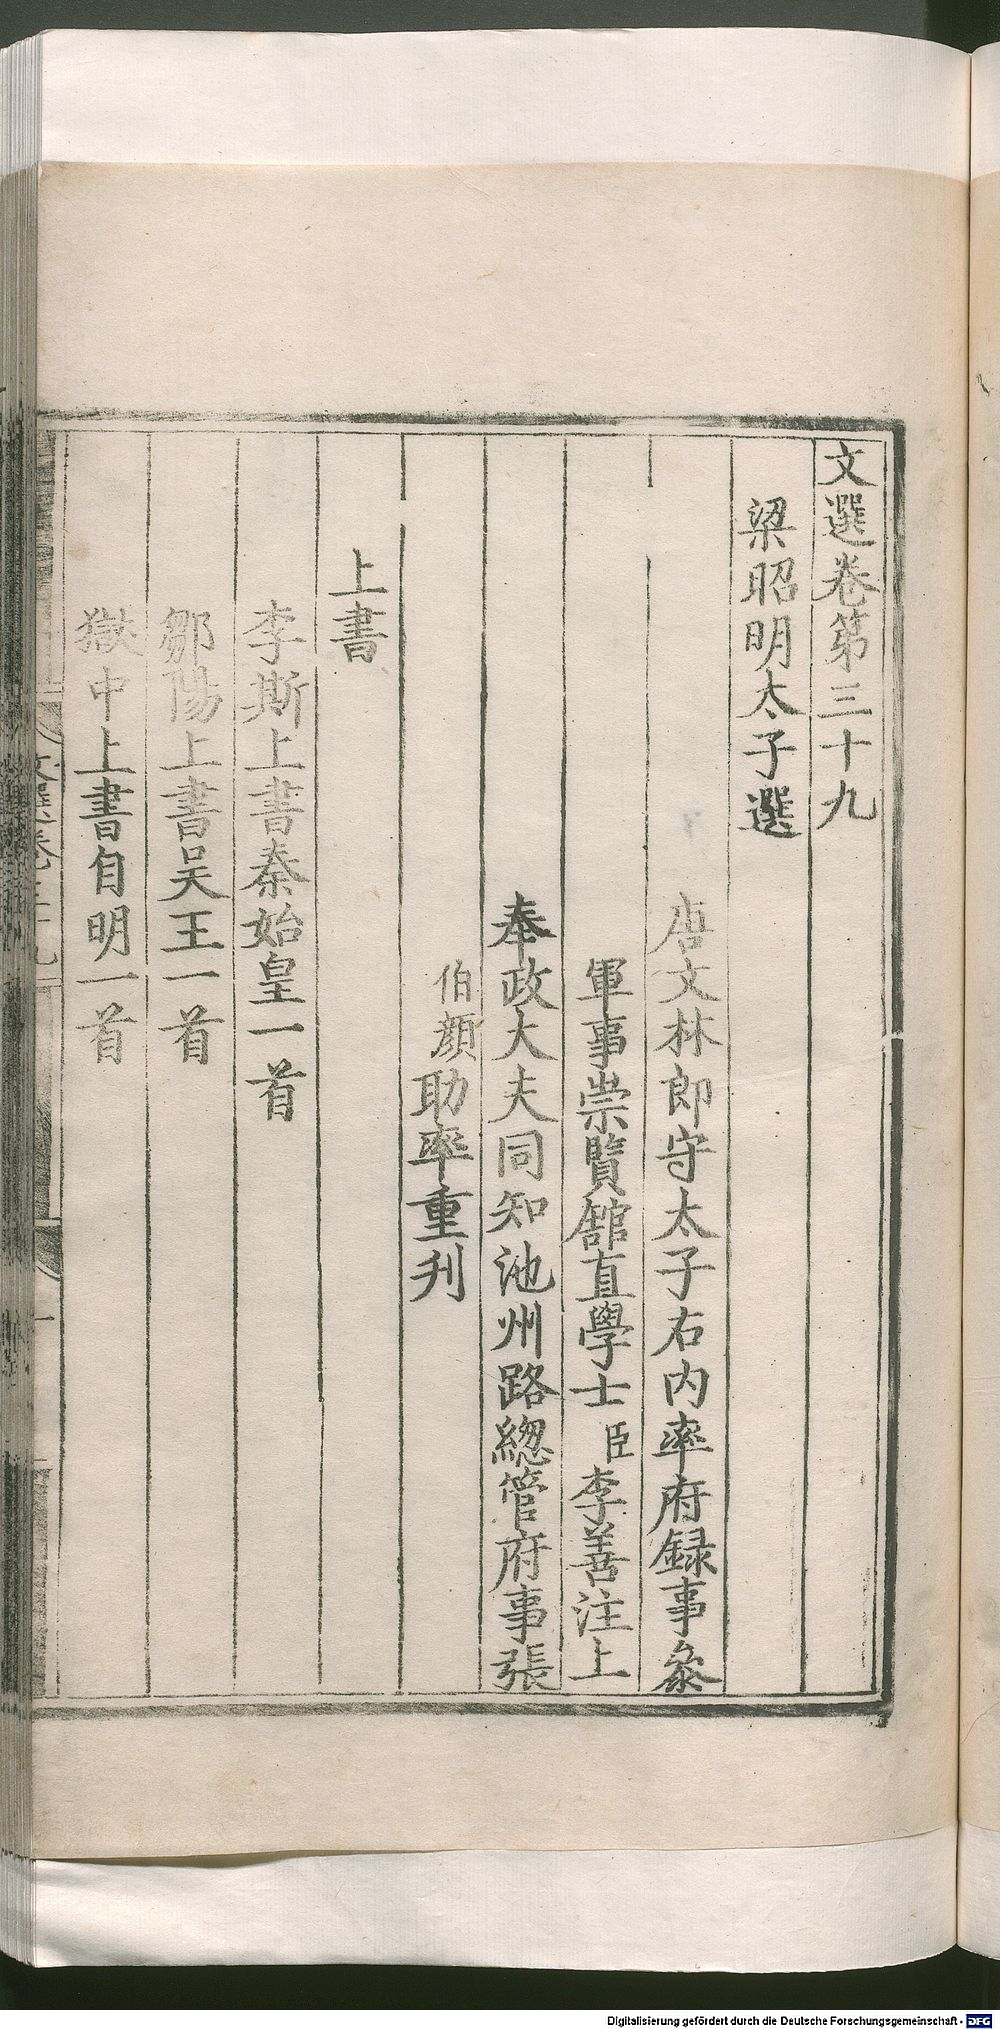 文選卷第三十九
梁昭明太子選
唐文林郎守太子右内率府録事叅
軍事崇賢館直學士臣李善注上
奉政大夫同知池州路緫管府事張
伯顔助率重刋
上書
李斯上書秦始皇一首
鄒陽上書吴王一首
獄中上書自明一首
文選卷三十九
一
Digitalisierung gefördert durch die Deutsche Forschungsgemeinschaft - DFG